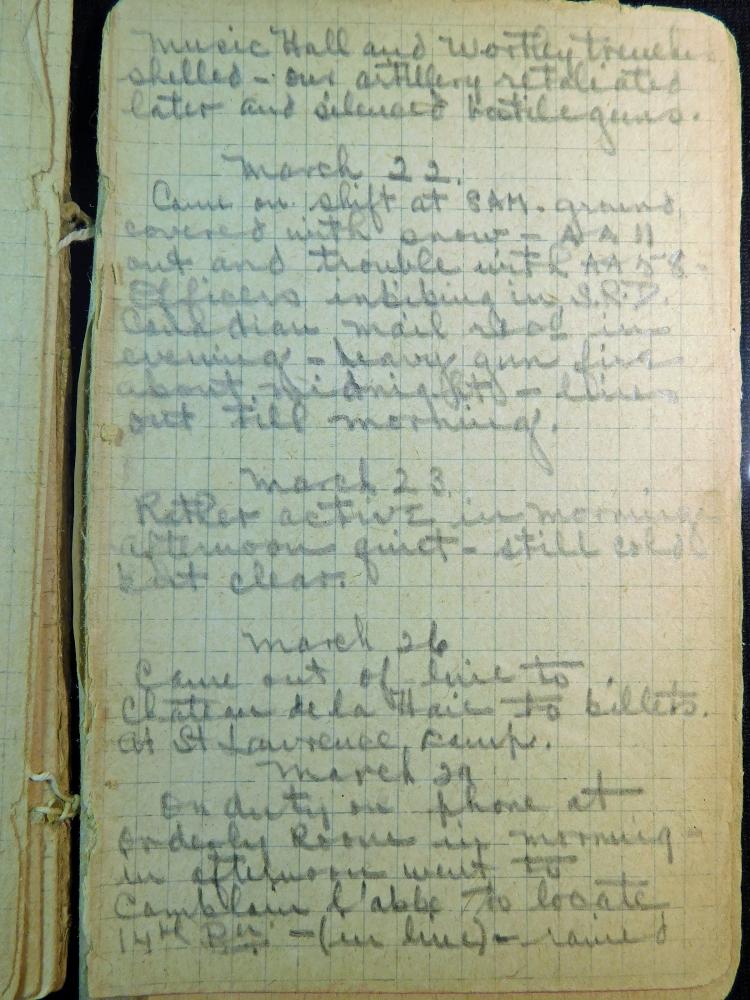 Music Hall and Wortley trenches
shelled - our artillery retaliated
later and silenced hostile guns.
March 22.
Came on shift at 8AM. ground
covered with snow - AA11
out and trouble with AA58-
Officers imbibing in S.R.D.
Canadian mail rec'd in
evening - heavy gun fire
about midnight - lines
out till morning.
March 23.
Rather active in morning
afternoon quiet - still cold
but clear.
March 26
Came out of line to
Chateau de la Haie to billets.
At St Lawrence Kamp.
March 27
On duty on phone at
Orderly Room in morning -
in afternoon went to
Camblain l'abbe to locate
14th Bn. - (in line) - rained